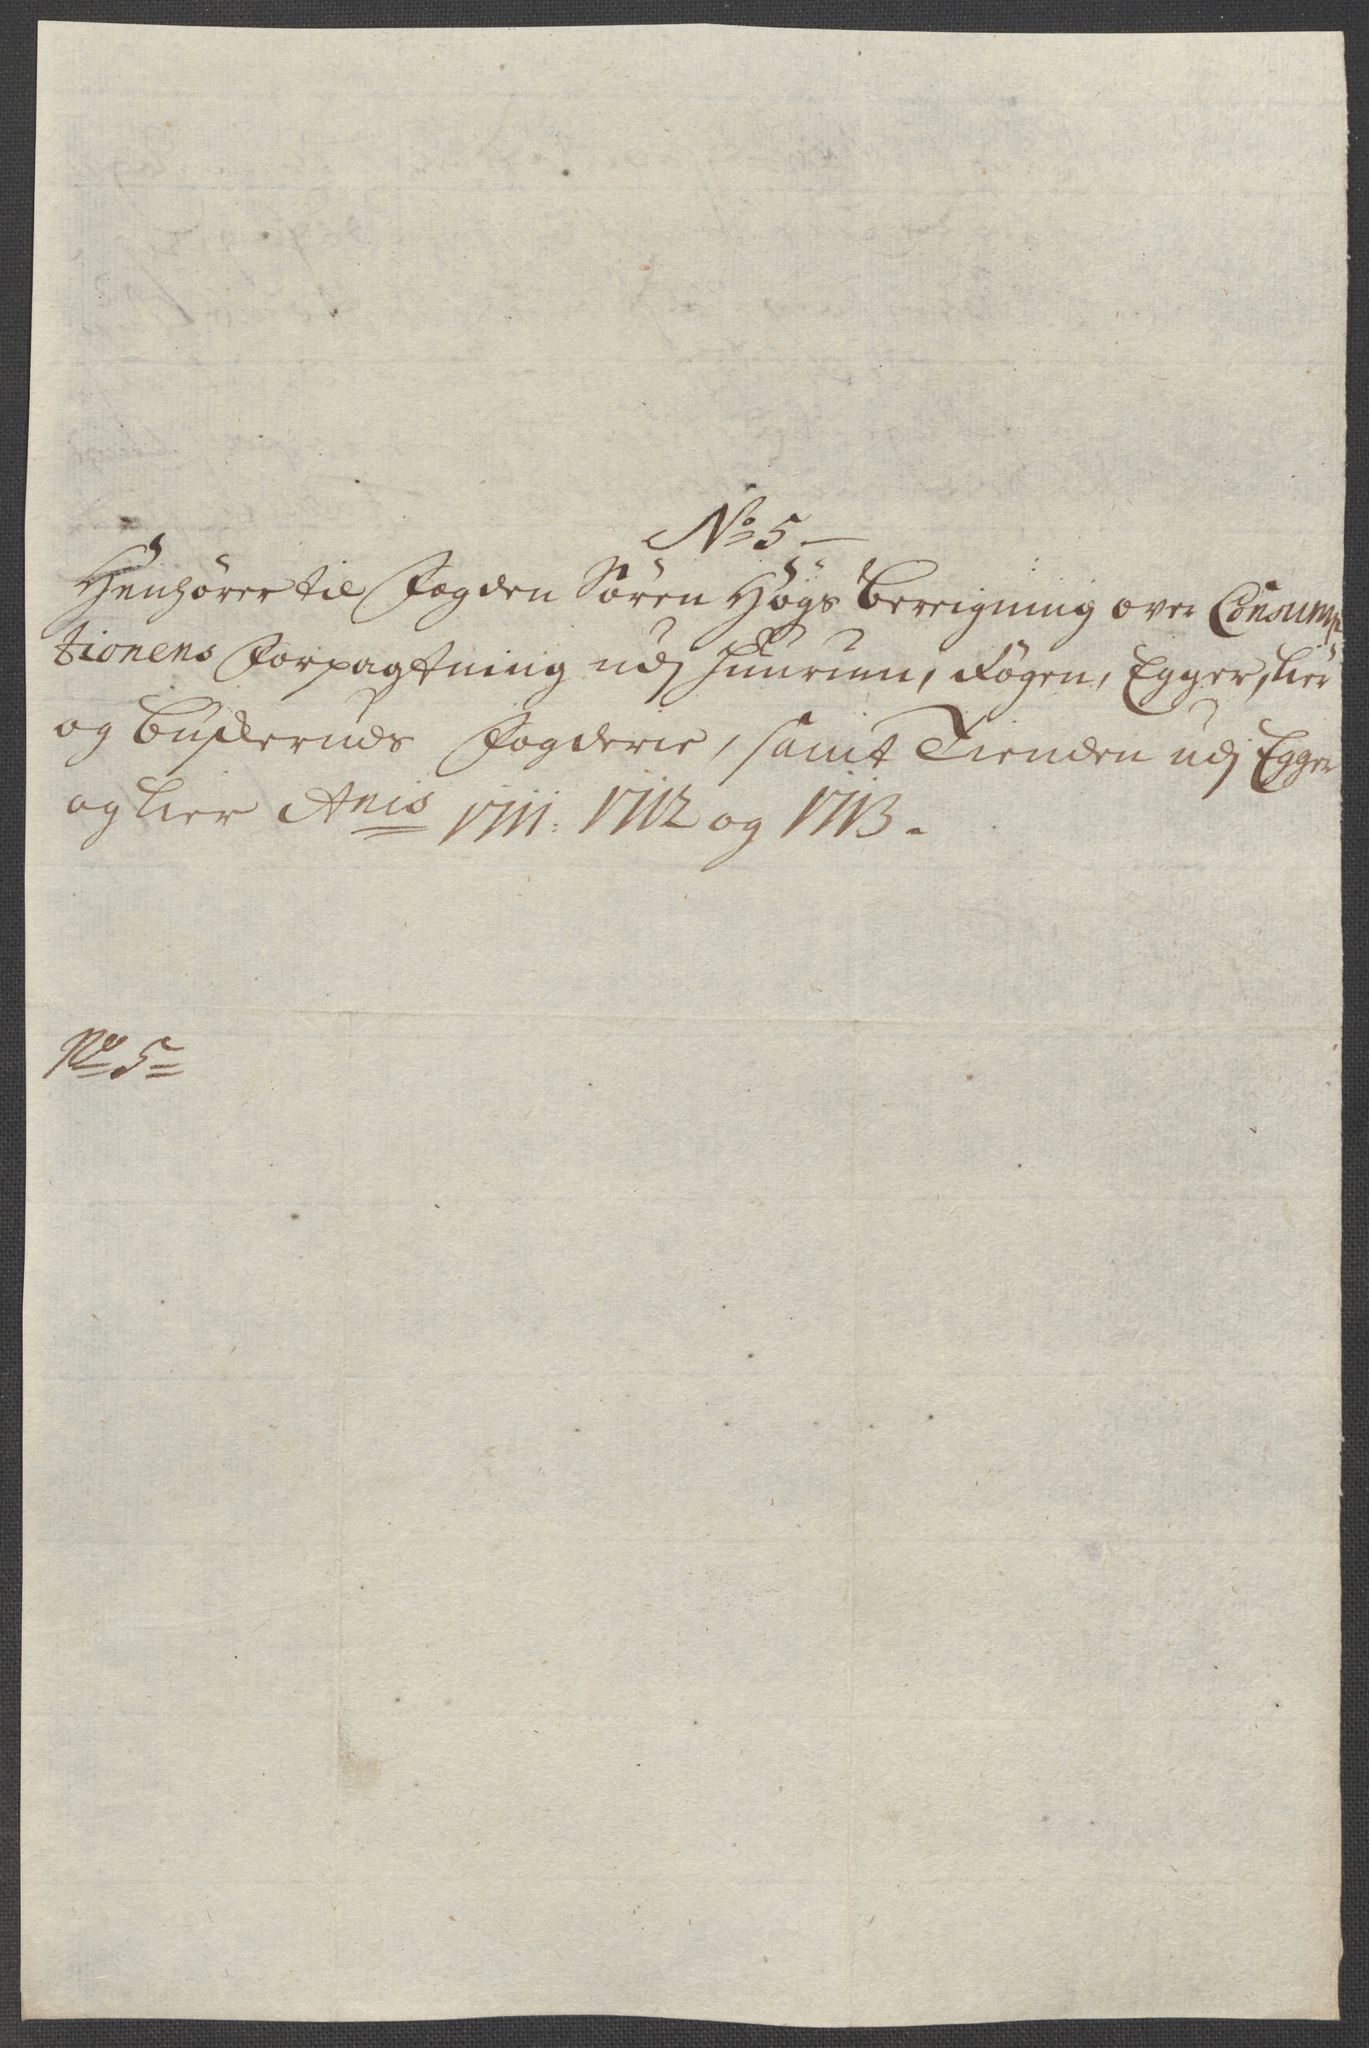 No 5
Henhører til Fogden Søren Høgs bereigning over Consump
tionens Forpagtning udj Huurum, Røgen, Egger, Lier
og buskeruds Fogderie, samt Tienden udj Egger
og Lier Anis 1711. 1712 og 1713.
No 5